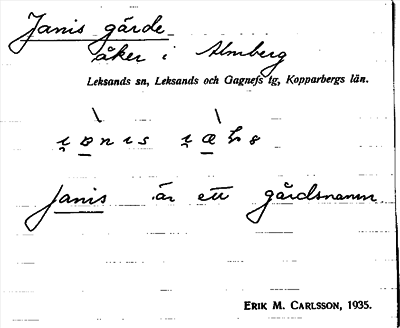 Janis gärde
åker i Almberg
Leksands sn, Leksands och Gagnefs tg, Kopparbergs län.
Janis är ett gårdsnamn
ERIK M. CARLSSON, 1935.